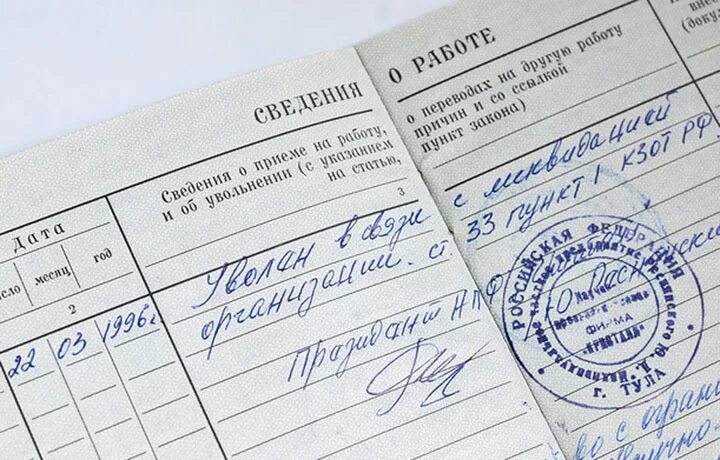 СВЕДЕНИЯ О РАБОТЕ
Дата
число месяц год
Сведения о приеме на работу, о переводах на другую работу
и об увольнении (с указанием причин и со ссылкой
на статью, пункт закона)
2
3
22 03 1996г. Уволан в связи с ликвидацией
организации. ст. 33 пункт 1 КЗОТ РФ
Празидант НПФ
РОССИЙСКАЯ ФЕДЕРАЦИЯ
ФИРМА
"КРИСТАЛЛ"
г. ТУЛА
во с ограни